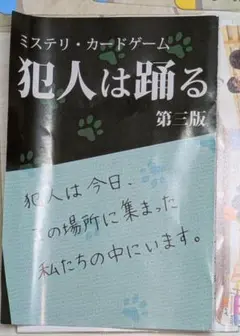 ミステリ・カードゲーム
犯人は踊る
第三版
犯人は今日、
この場所に集まった
私たちの中にいます。